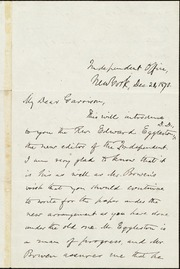 Independent Office,
New York, Dec. 28, 1871.
My Dear Garrison,
This will introduce
to you the Rev. Edward Eggleston, D.D.,
the new editor of the Independent.
I am very glad to know that it
is his as well as Mr. Bowen's
wish that you should continue
to write for the paper under the
new arrangement as you have done
under the old one. Mr. Eggleston
is a man of progress, and Mr.
Bowen assures me that he